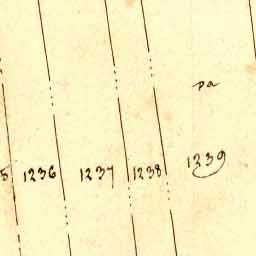 pa
5 1236 1237 1238 1239